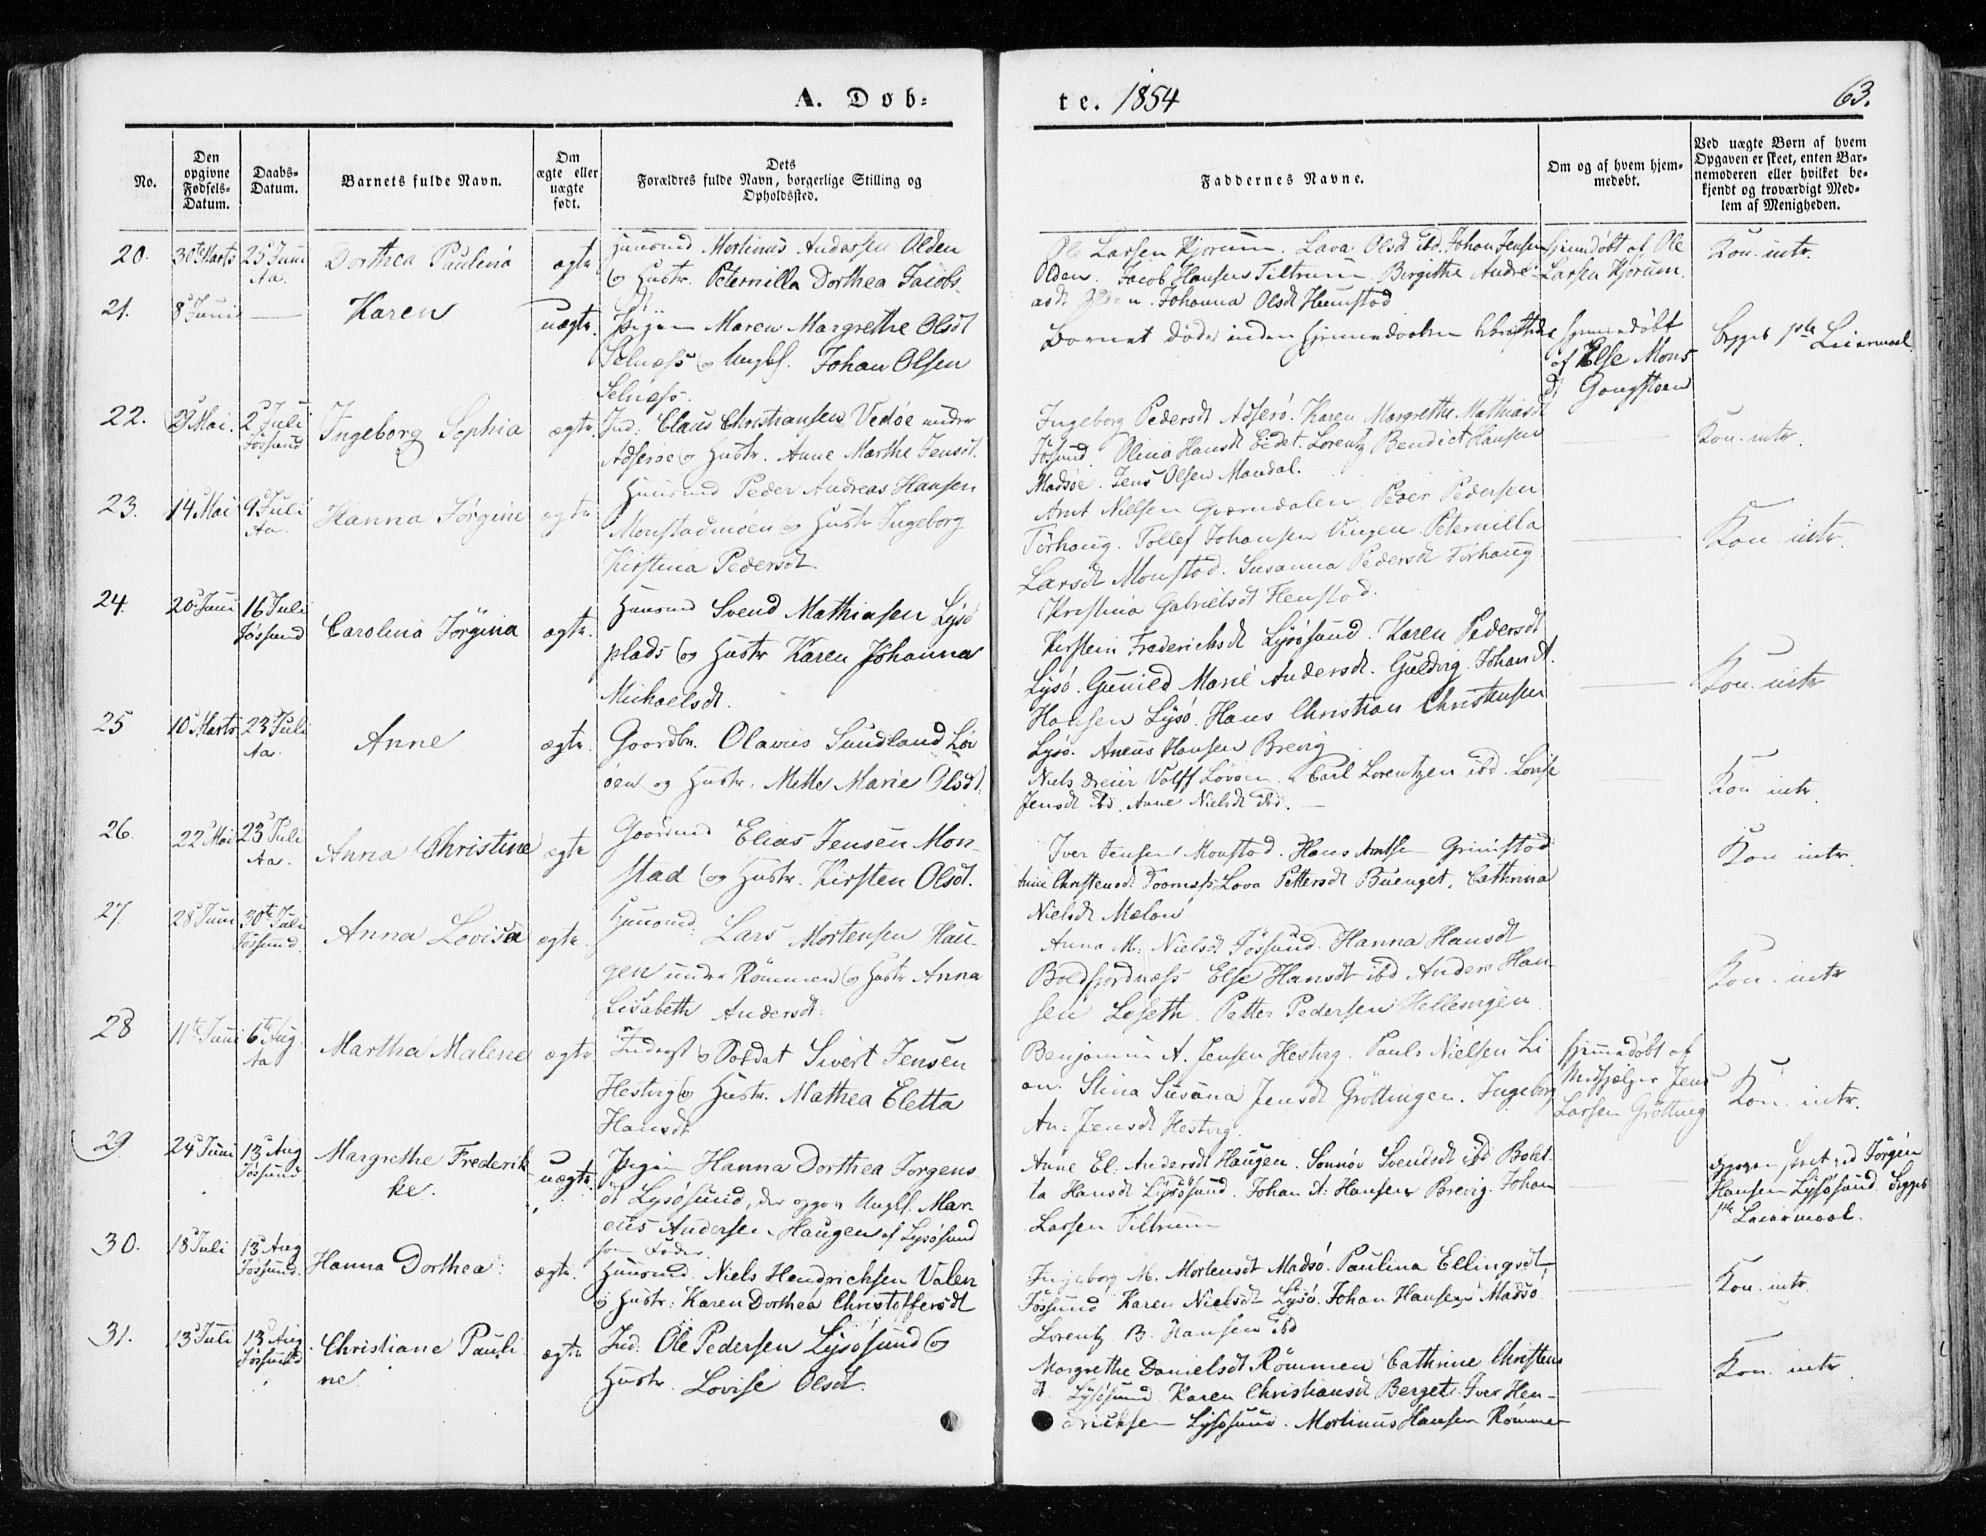 A. Døb-
te. 1854
63.
No.
Den
opgivne
Fødsels-
Datum.
Daabs-
Datum.
Barnets fulde Navn.
Om
ægte eller
uægte
født.
Dets
Forældres fulde Navn, borgerlige Stilling og
Opholdssted.
Faddernes Navne.
Om og af hvem hjem-
medøbt.
Ved uægte Børn af hvem
Opgaven er skeet, enten Bar-
nemoderen eller hvilket be-
kjendt og troværdigt Med-
lem af Menigheden.
20. 30te Marts 25 Juni
Aa.
Dorthea Paulina
ægte
Huusmd Mortinus Andersen Olden
og Hustr. Peternilla Dorthea Jacobs-
Ole Larsen Kjørum. Lava Olsdt ibd. Johan Jensen
Olden. Jacob Hansen Tiltrum. Birgithe Andre-
asdt Olden. Johanna Olsdt Hemstad
hjemdøbt af Ole
Larsen Kjørum.
Kon. intr.
21. 8 Juni —
Karen
uægte.
Pigen Maren Margrethe Olsdt
Selnæss og Ungkl. Johan Olsen
Selnæss.
Barnet døde inden hjemmedaaben
hjemmedøbt
af Else Mons-
dt
Begges 1ste Leiermaal.
22. 29 Mai. 2 Juli
Jøssund
Ingeborg Sophia
ægte.
Ind: Claus Christiansen Vedøe under
Adserøe og Hustr. Anne Marthe Jensdt.
Ingeborg Pedersdt Adserø. Karen Margrethe Mathiasdt
Jøsund. Olina Hansdt Eidet. Lorentz Bendict Hansen
Madsøe. Jens Olsen Mandal.
Kon. intr.
23. 14 Mai 9 Juli
Aa.
Hanna Jørgine
ægte
Huusmd Peder Andreas Hansen
Monstadmoen og Hustr Ingeborg
Kirstina Pedersdt
Arnt Nielsen Peder Pedersen
Terhoug. Tollef Johansen Vingen Peternilla
Larsdt Monstad. Susanna Pedersdt Terhaug
Kristina Gabrielsdt Henstad.
Kon. intr.
24. 20 Juni 16 Juli
Jøssund
Carolina Jørgina
ægte.
Huusmd Svend Mathiasen Lysø
plads og Hustr Karen Johanna
Michaelsdt.
Kirstein Frederichsdt Lysøsund. Karen Pedersdt
Lysø. Gunild Marie Andersdt. Guldvig. Johan A.
Hansen Lysø. Hans Christian Christensen
Lysø. Aneus Hansen Brevig
Kon. intr
25 10 Marts 23 Juli
Aa.
Anne
ægte.
Gaardbr. Olavus Sundland Løv
øen og Hustr. Mette Marie Olsdt.
Niels Dreier Volff Løvøen. Carl Lorentzen ibd. Lovise
Jensdt ibd. Anne Nielsdt ibd.
Kon. intr
26. 22 Mai 23 Juli
Aa.
Anna Christine
ægte
Gaardmd Elias Jensen Mon-
stad og Hustr. Kirsten Olsdt.
Iver Jensen Monstad. Hans Arntsen Grimstad
Anne Christensdt Lova Pettersdt Buenget. Cathrina
Nielsdt Mælan
Kon intr.
27. 28 Juni 30te Juli
Jøssund.
Anna Lovisa
ægte.
Huusmd. Lars Mortensen Hau-
gen under Rømmen og Hustr Anna
Lisabeth Andersdt.
Anna M: Nielsdt Jøssund. Hanna Hansdt
Boldfjordnæss Else Hansdt ibd Anders Han-
sen Leseth. Petter Pedersen Hellesvigen
Kon. intr
28 11te Juni 6te Aug.
Aa
Martha Malene
ægte
Inderst og Soldat Sivert Jensen
Hestvig og Hustr. Mathea Eletta
Hansdt
Benjamin A. Jensen Hestvig. Pauls Nielsen Li
an. Stina Susana Jensdt Grøttingen. Ingeborg
An: Jensdt Hestvig.
hjemmedøbt af
Medhjælper Jens
Larsen Grøtting
Kon. intr.
29 24 Juni 13 Aug
Jøssund
Margrethe Frederik-
ke.
uægte.
Pigen Hanna Dorthea Jørgens-
dt Lysøsund, der opgav Ungkl. Mar-
cus Andersen Haugen af Lysøsund
som Fader.
Anne El. Andersdt Haugen. Sonnøv Svendsdt ibd Bolet-
ta Hansdt Lysøsund. Johan A: Hansen Brevig. Johan
Larsen Tiltrum
Opgaven skeet ved Jørgen
Hansen Lysøsund. Begges
1ste Leiermaal.
30. 18 Juli 13 Aug
Jøssund.
Hanna Dorthea.
ægte.
Huusmd. Niels Hendrichsen Valen
og Hustr. Karen Dorthea Christoffersdt
Ingeborg M. Mortensdt Madsø. Paulina Ellingsdt
Jøssund Karen Nielsdt Lysø. Johan Hansen Madsø
Lorentz B. Hansen ibd
Kon. intr.
31. 13 Juli 13 Aug
Jøssund
Christiane Pauli-
ne.
ægte
Ind: Ole Pedersen Lysøsund og
Hustr. Lovise Olsdt.
Margrethe Danielsdt Rømmen Cathrine Christens
dt. Lysøsund Karen Christiansdt Berget. Iver Hen-
dricksen Lysøsund. Mortinus Hansen Rømmen
Kon. intr.